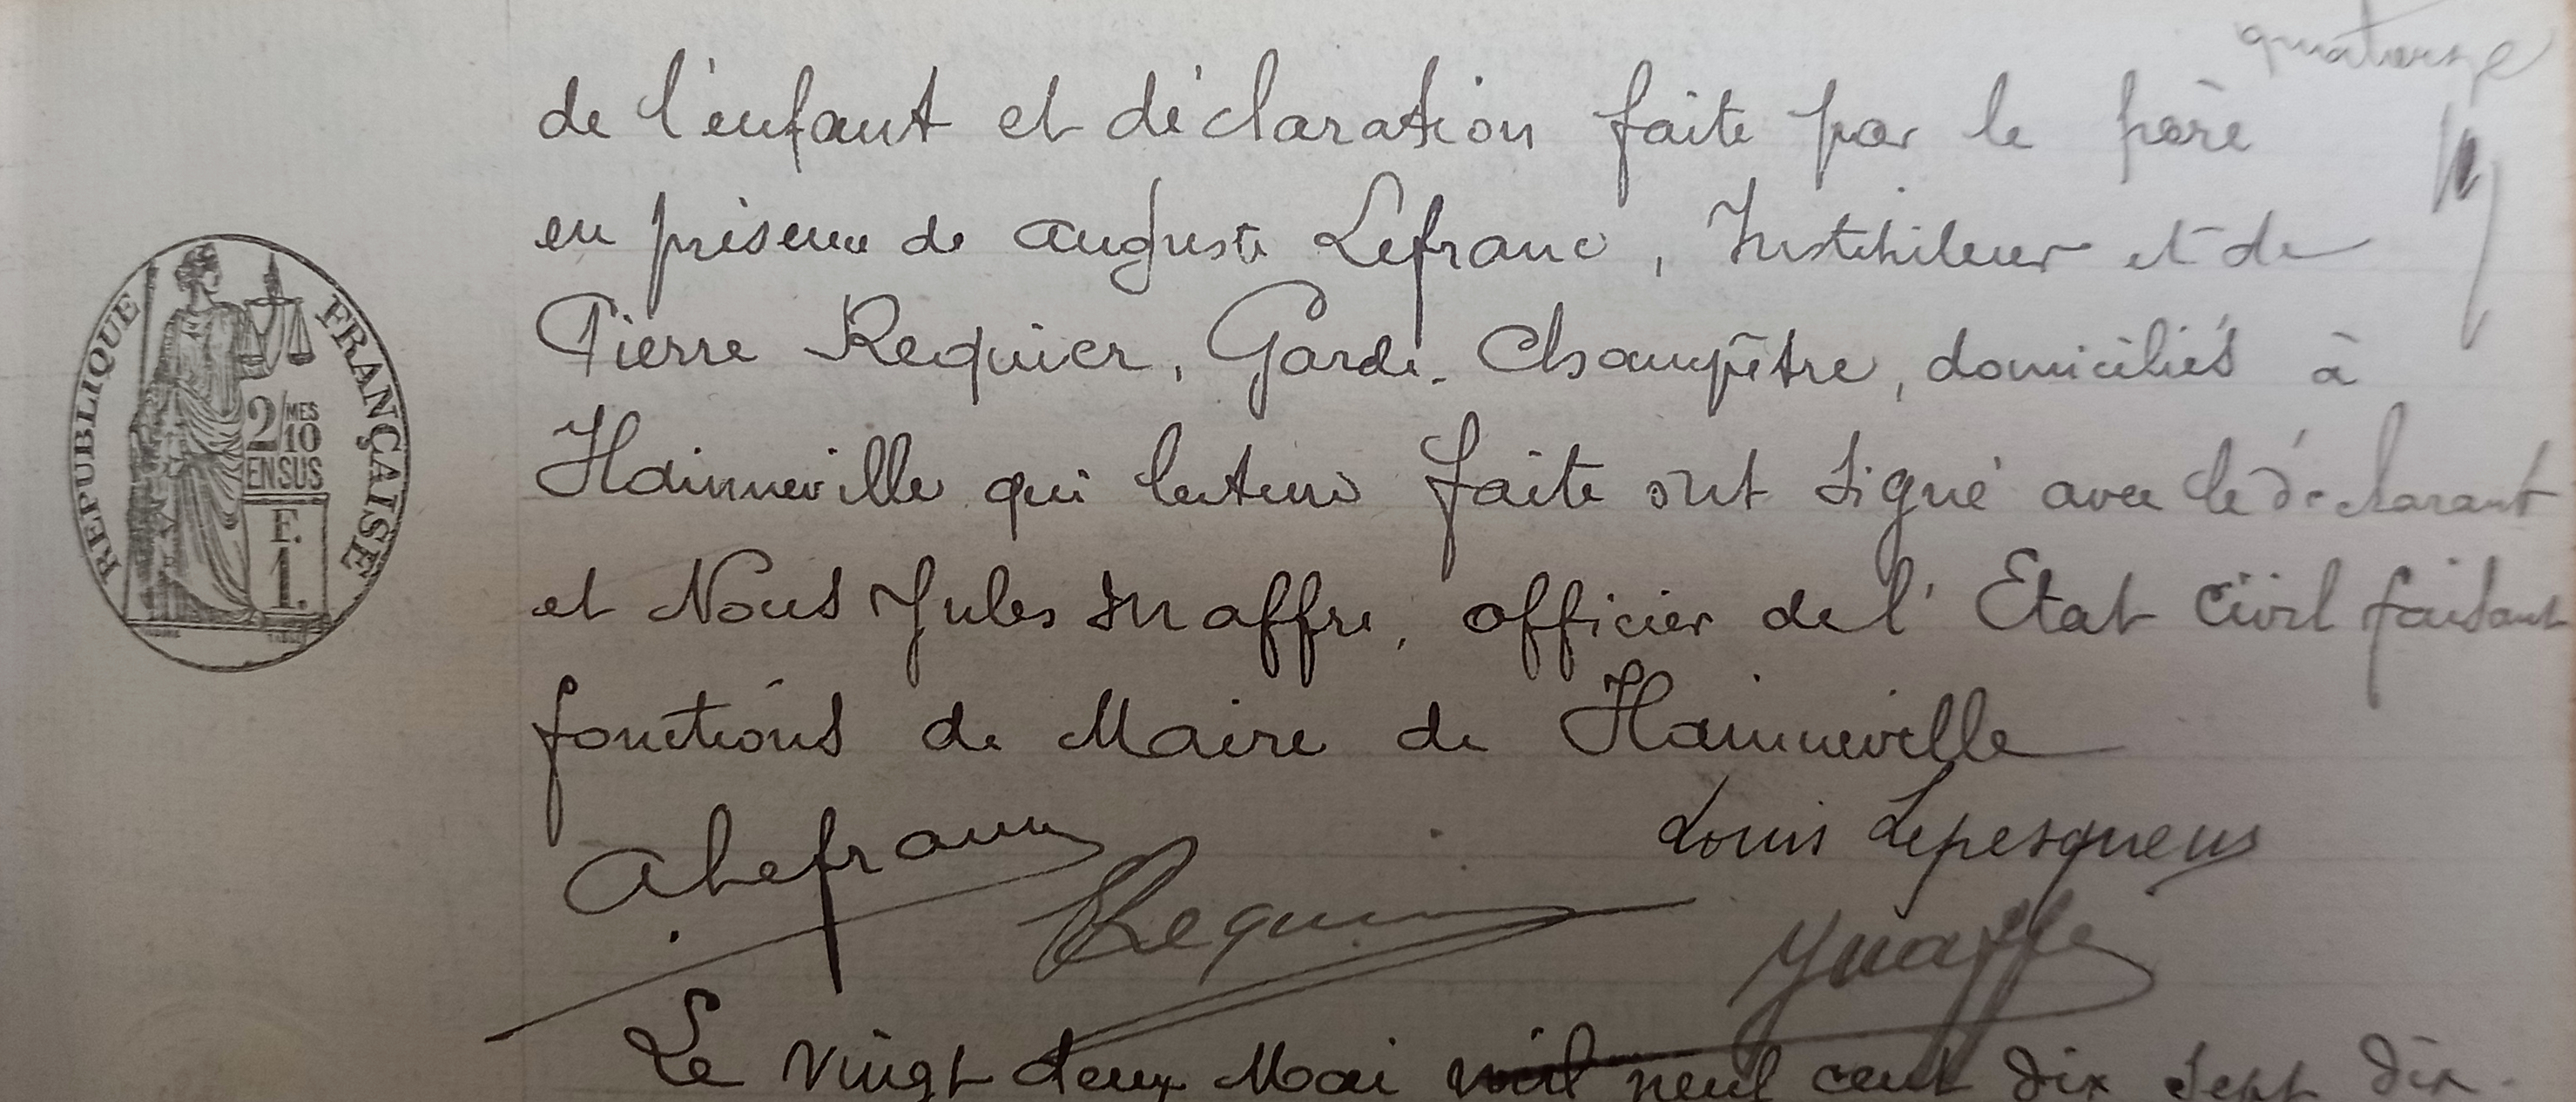 quatorze
de l'enfant et déclaration faite par le père
en présence de Auguste Lefranc, Instituteur et de
Pierre Requier, Garde-Champêtre, domiciliés à
Hainneville qui lecture faite ont signé avec le déclarant
et Nous Jules Maffre, officier de l'Etat Civil faisant
fonctions de Maire de Hainneville
RÉPUBLIQUE FRANÇAISE
2/MES
10
EN SUS
E.
1.
Louis Lepesqueur
A Lefranc
Requier
JMaffre
Le vingt deux Mai mil neuf cent dix sept dix-